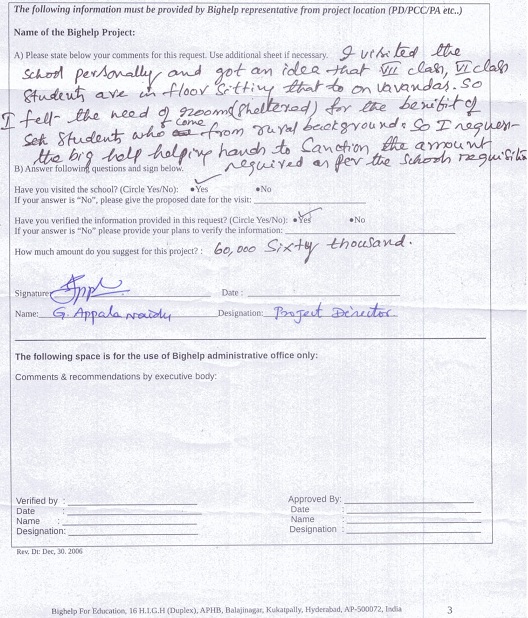 The following information must be provided by Bighelp representative from project location (PD/PCC/PA etc..)
Name of the Bighelp Project:
A) Please state below your comments for this request. Use additional sheet if necessary. I visited the
school personally and got an idea that VII class, VI class
Students are in floor sitting that to on Varandas. So
I felt the need of 2rooms (sheltered) for the benifit of
Students who come from rural background. So I request
the big help helping hands to Sanction the amount
required as per the schools requisition
B) Answer following questions and sign below.
Have you visited the school? (Circle Yes/No): •Yes •No
If your answer is "No", please give the proposed date for the visit:
Have you verified the information provided in this request? (Circle Yes/No): •Yes •No
If your answer is "No" please provide your plans to verify the information:
How much amount do you suggest for this project? : 60,000 Sixty thousand.
Signature: Date :
Name: G. Appala naidu Designation: Project Director
The following space is for the use of Bighelp administrative office only:
Comments & recommendations by executive body:
Verified by : Approved By:
Date : Date :
Name : Name :
Designation: Designation :
Rev. Dt: Dec, 30. 2006
Bighelp For Education, 16 H.I.G.H (Duplex), APHB, Balajinagar, Kukatpally, Hyderabad, AP-500072, India 3